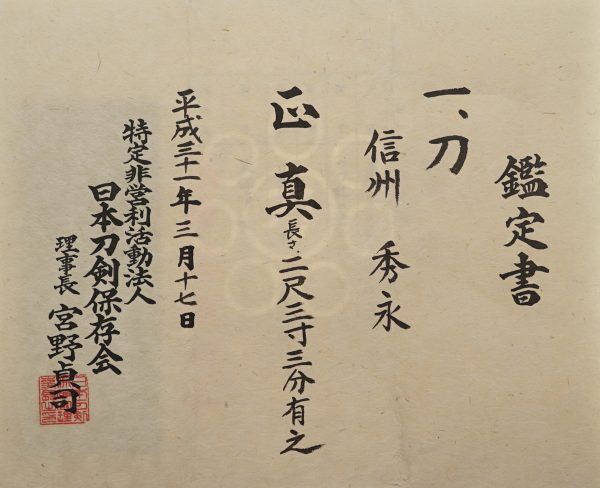 鑑定書
一、刀
信州 秀永
正真
長さ、二尺三寸三分有之
平成三十一年三月十七日
特定非営利活動法人
日本刀剣保存会
理事長 宮野貞司